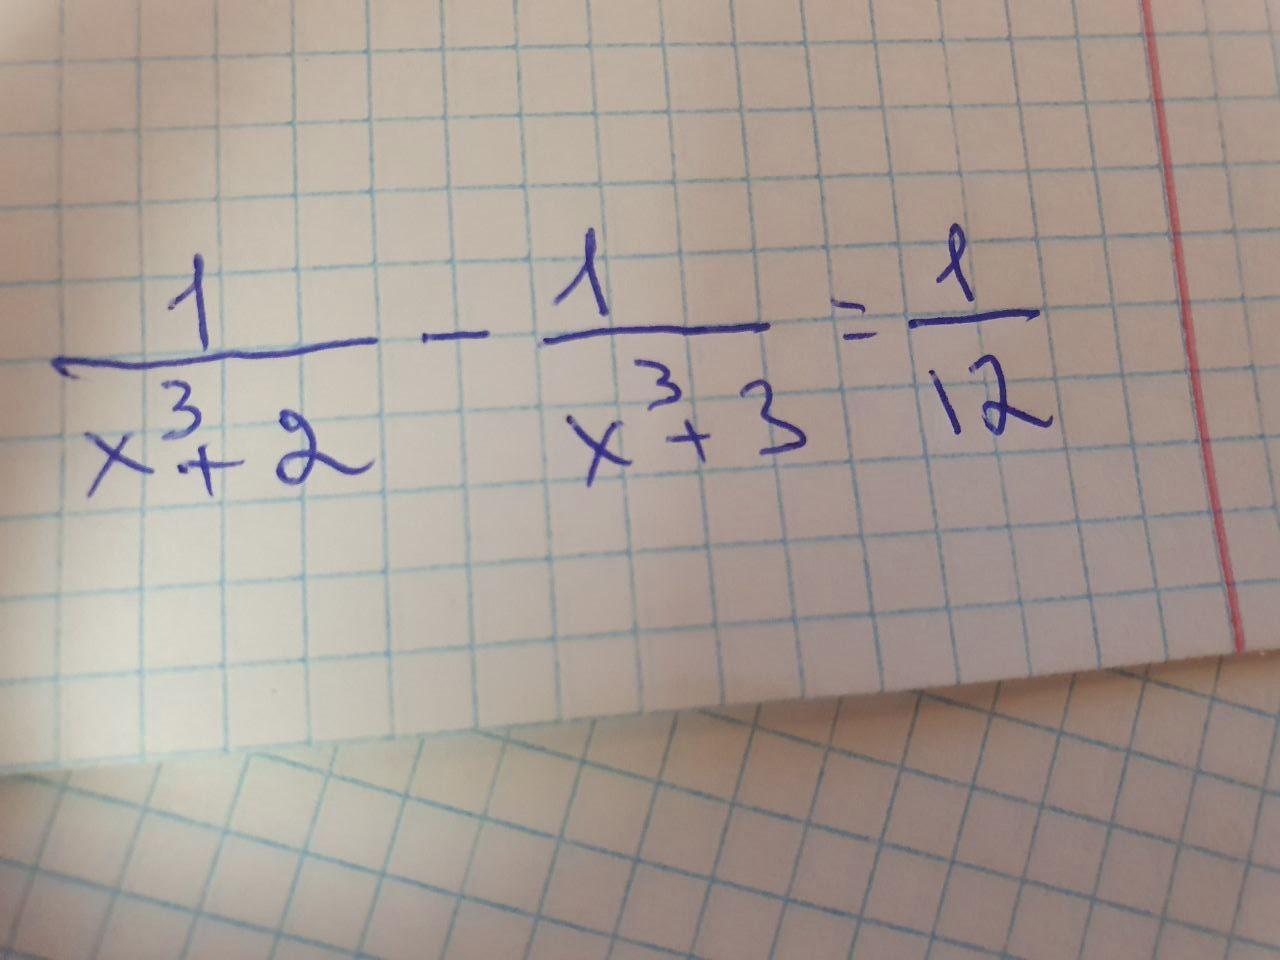 1/(x³+2) - 1/(x³+3) = 1/12